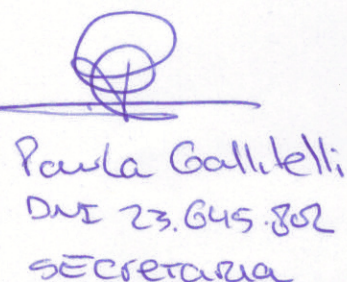 Paula Gallitelli
DNI 23.645.802
SECretaria